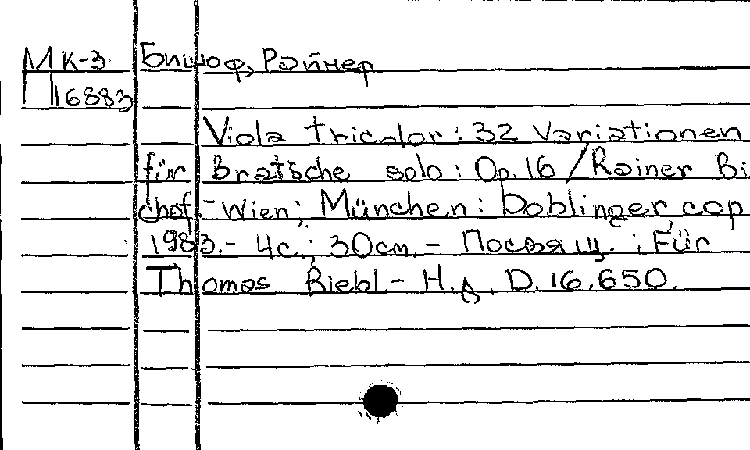 МК-3 Бишоф, Райнер
16883
Viola tricolor : 32 Variationen
für Bratsche solo : Op. 16 / Rainer Bi
chof. - Wien; München : Doblinger, cop
1983. - 4 с. ; 30 см. - Посвящ. : Für
Thomas Riebl - Н. д. D. 16.650.